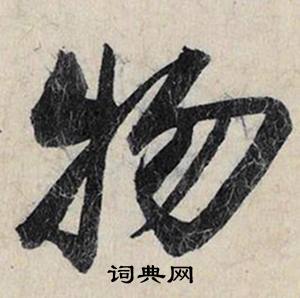 物
词典网